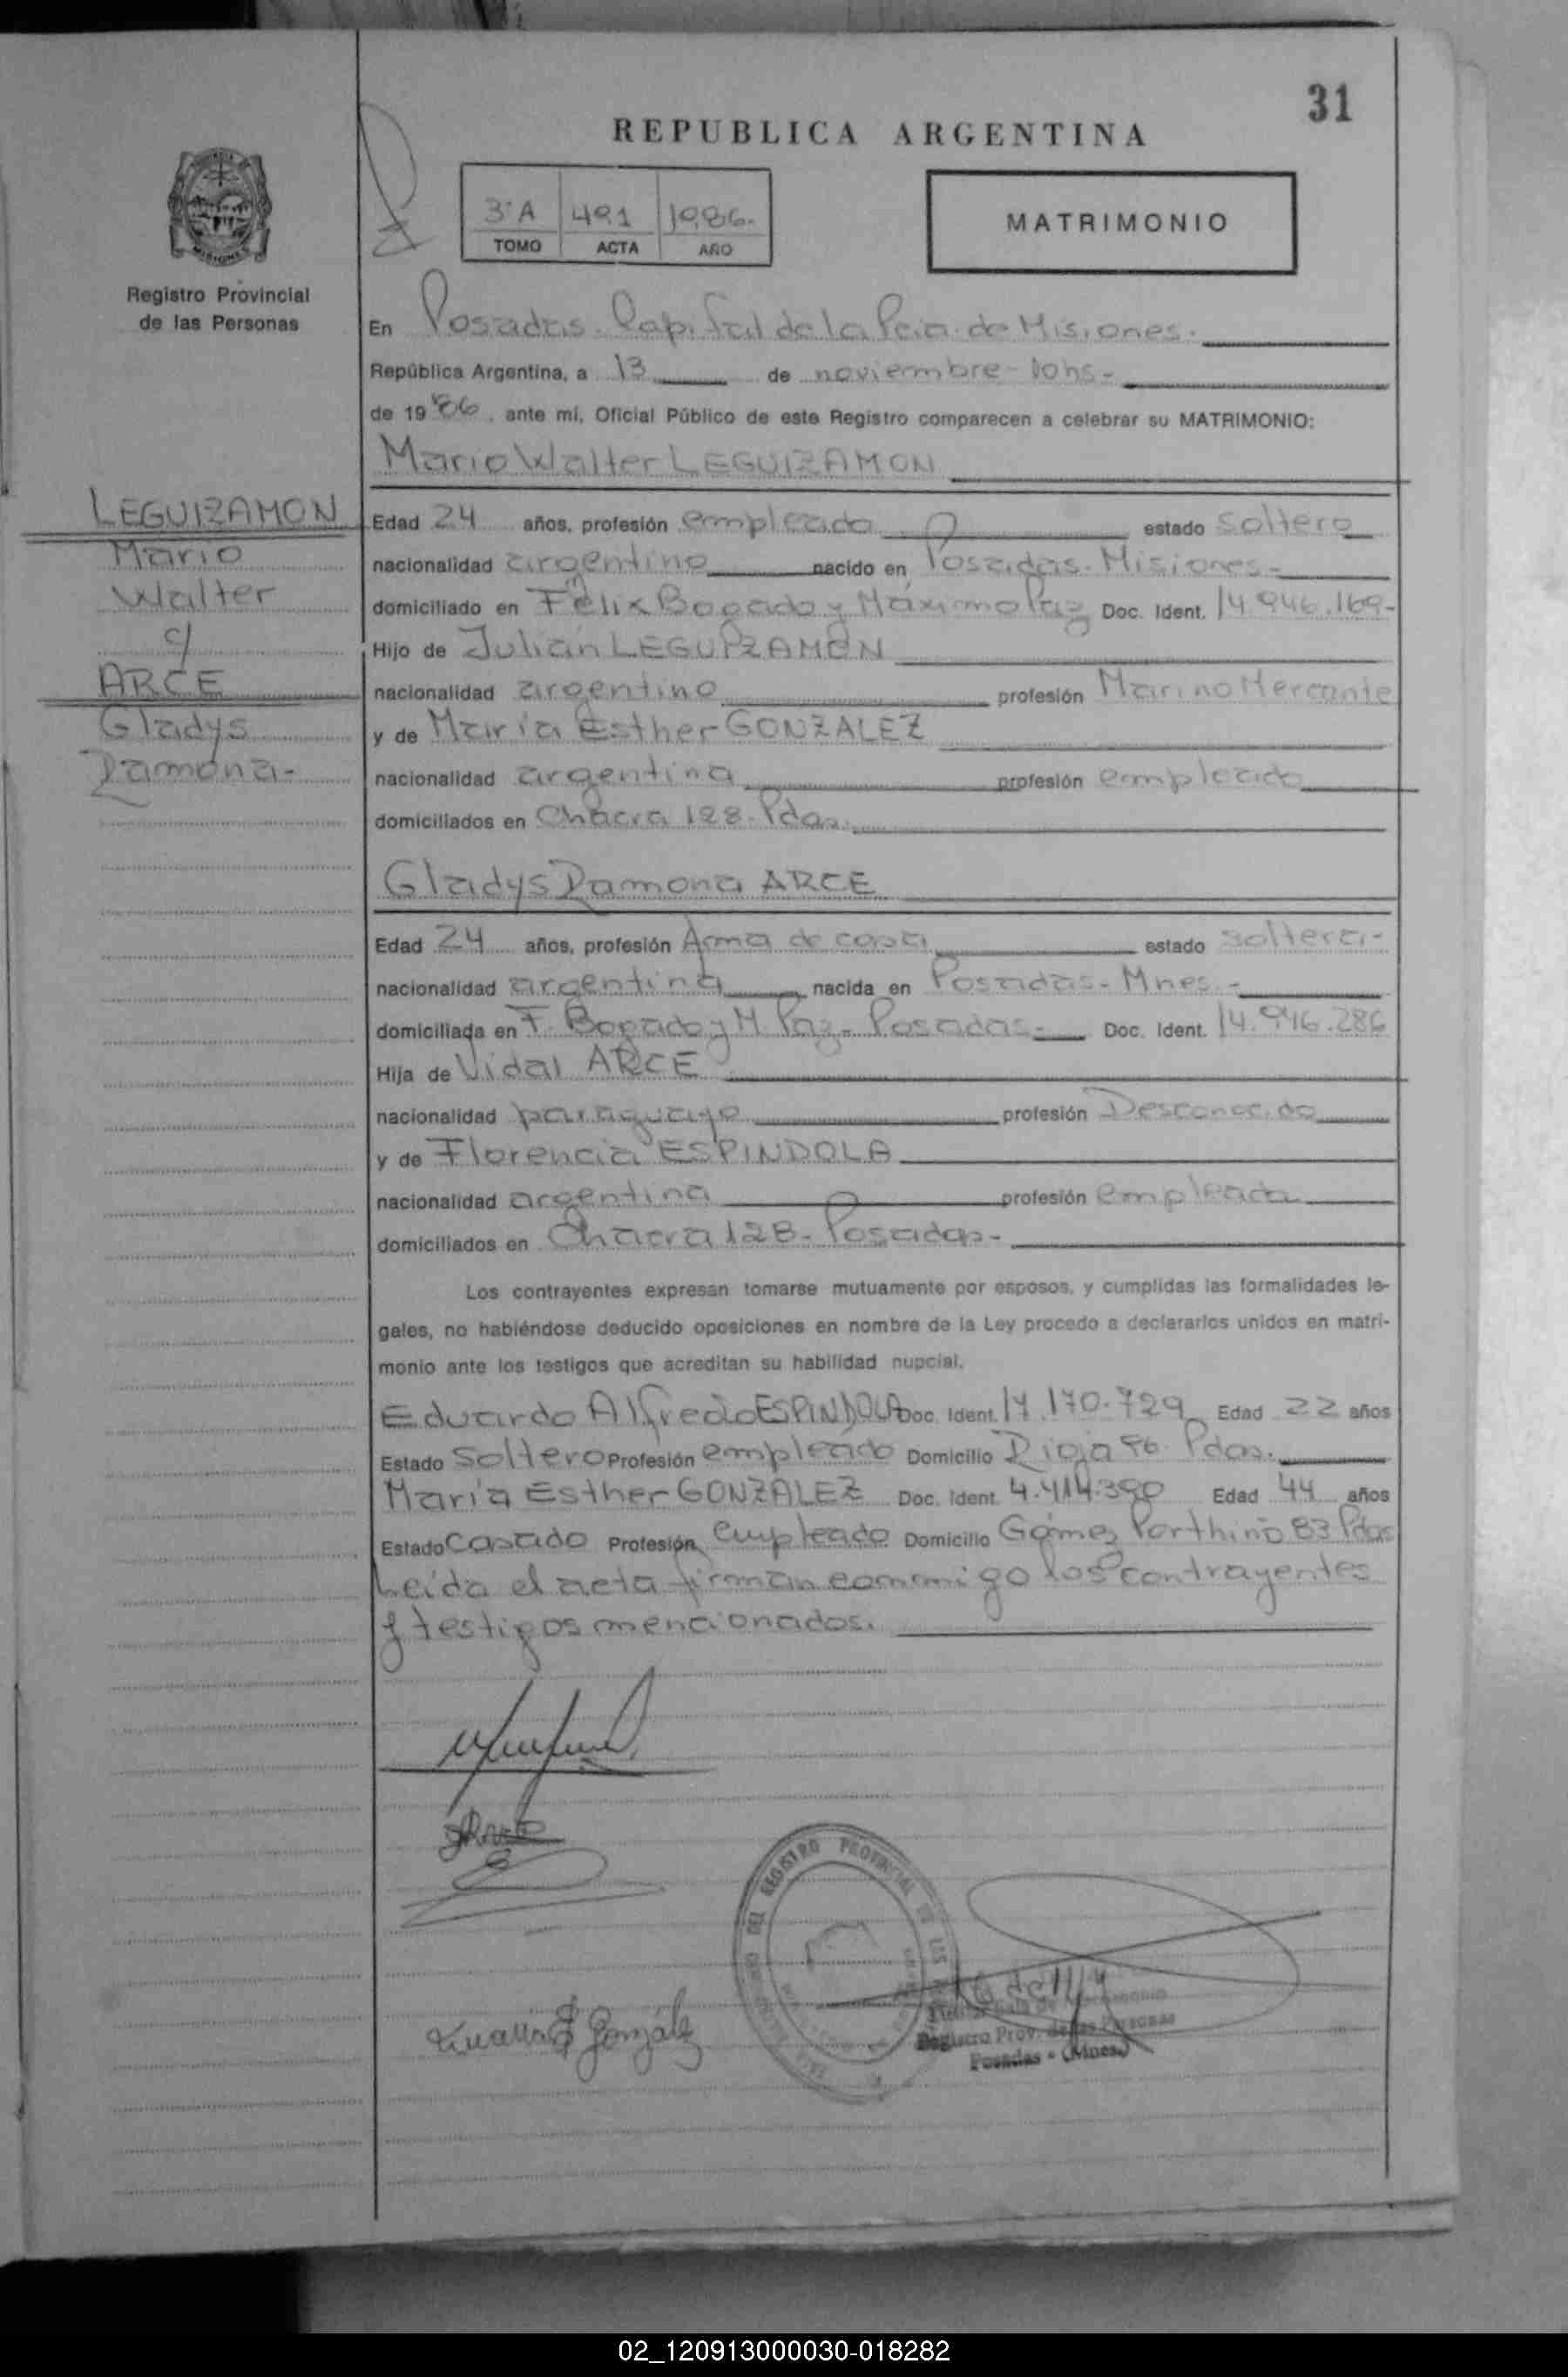 31
REPUBLICA ARGENTINA
3°A 491 1986.-
TOMO ACTA AÑO
MATRIMONIO
Registro Provincial
de las Personas
En Posadas. Capital de la Pcia. de Misiones.
República Argentina, a 13 de noviembre - 10hs-
de 1986, ante mí, Oficial Público de este Registro comparecen a celebrar su MATRIMONIO:
Mario Walter LEGUIZAMON
LEGUIZAMON
Mario
Walter
c/
ARCE
Gladys
Ramona-
Edad 24 años, profesión empleado estado soltero
nacionalidad argentino nacido en Posadas. Misiones-
domiciliado en Félix Bogado y Máximo Paz Doc. Ident. 14.946.169-
Hijo de Julián LEGUIZAMON
nacionalidad argentino profesión Marino Mercante
y de María Esther GONZALEZ
nacionalidad argentina profesión empleada
domiciliados en Chacra 128. Pdas.
Gladys Ramona ARCE
Edad 24 años, profesión Ama de casa estado soltera-
nacionalidad argentina nacida en Posadas- Mnes.-
domiciliada en F. Bogado y M Paz- Posadas- Doc. Ident. 14.946.286
Hija de Vidal ARCE
nacionalidad paraguayo profesión Desconocido
y de Florencia ESPINDOLA
nacionalidad argentina profesión empleada
domiciliados en Chacra 128- Posadas-
Los contrayentes expresan tomarse mutuamente por esposos, y cumplidas las formalidades le-
gales, no habiéndose deducido oposiciones en nombre de la Ley procedo a declararlos unidos en matri-
monio ante los testigos que acreditan su habilidad nupcial.
Eduardo Alfredo ESPINDOLA Doc. Ident. 17.170.729 Edad 22 años
Estado Soltero Profesión empleado Domicilio Rioja 96. Pdas.
María Esther GONZALEZ Doc. Ident. 4.414.390 Edad 44 años
Estado Casado Profesión empleado Domicilio Gómez Porthino 83 Pdas
Leída el acta firman conmigo los contrayentes
y testigos mencionados.
DEL REGISTRO PROVINCIAL DE LAS
María E González
Registro Prov. de las Personas
Posadas - (Mnes.)
02_120913000030-018282